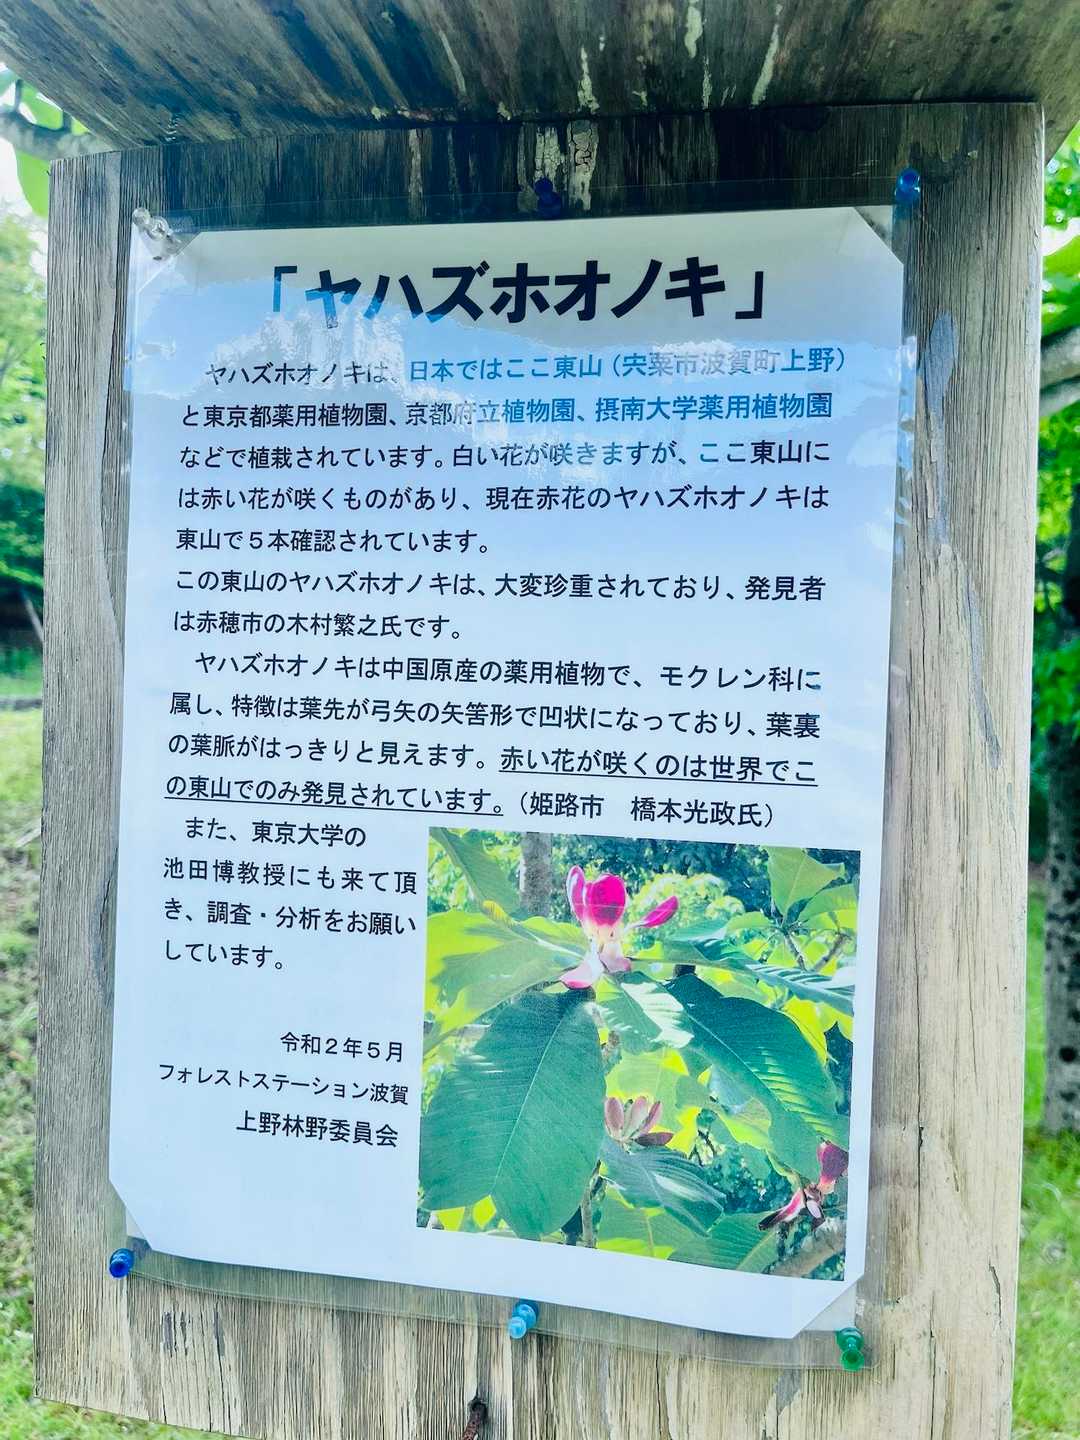 「ヤハズホオノキ」
ヤハズホオノキは、日本ではここ東山（宍粟市波賀町上野）
と東京都薬用植物園、京都府立植物園、摂南大学薬用植物園
などで植栽されています。白い花が咲きますが、ここ東山に
は赤い花が咲くものがあり、現在赤花のヤハズホオノキは
東山で５本確認されています。
この東山のヤハズホオノキは、大変珍重されており、発見者
は赤穂市の木村繁之氏です。
ヤハズホオノキは中国原産の薬用植物で、モクレン科に
属し、特徴は葉先が弓矢の矢筈形で凹状になっており、葉裏
の葉脈がはっきりと見えます。赤い花が咲くのは世界でこ
の東山でのみ発見されています。（姫路市　橋本光政氏）
また、東京大学の
池田博教授にも来て頂
き、調査・分析をお願い
しています。
令和２年５月
フォレストステーション波賀
上野林野委員会